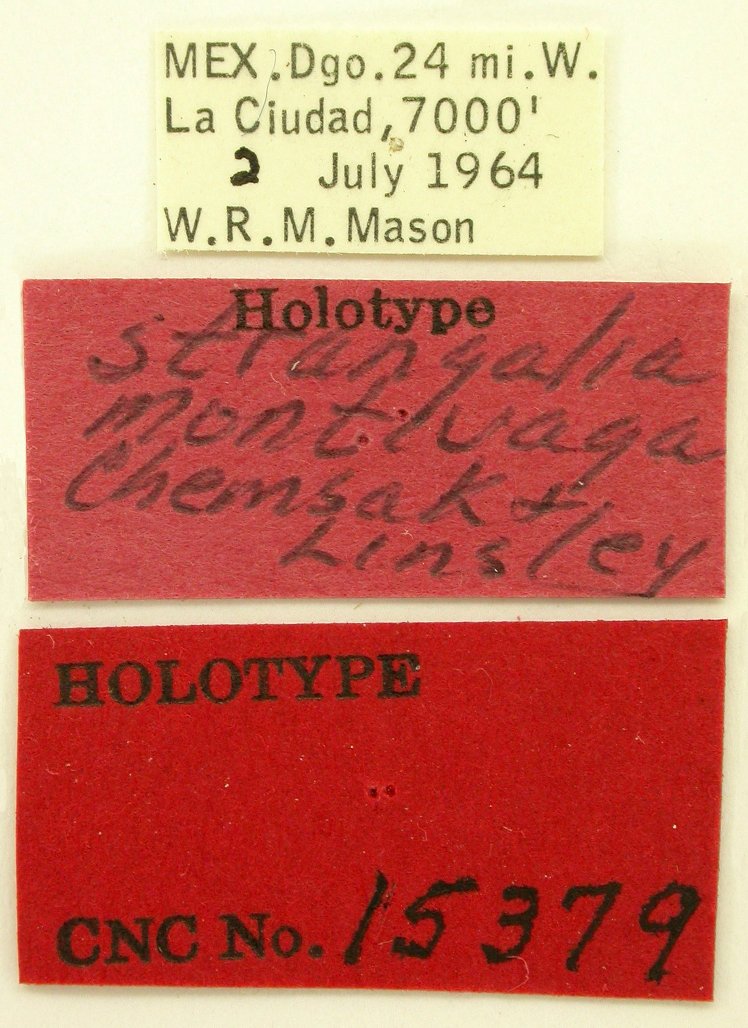 MEX.Dgo.24 mi.W.
La Ciudad,7000'
2 July 1964
W.R.M.Mason
Holotype
Strangalia
montivaga
Chemsak &
Linsley
HOLOTYPE
CNC No. 15379